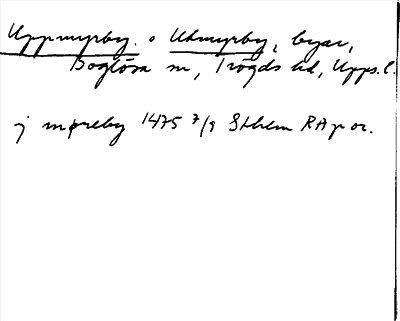 Uppmyrby. o Utmyrby, byar,
Boglösa sn, Trögds hd, Upps. l.
j møreby 1475 7/9 Sthlm RAp or.